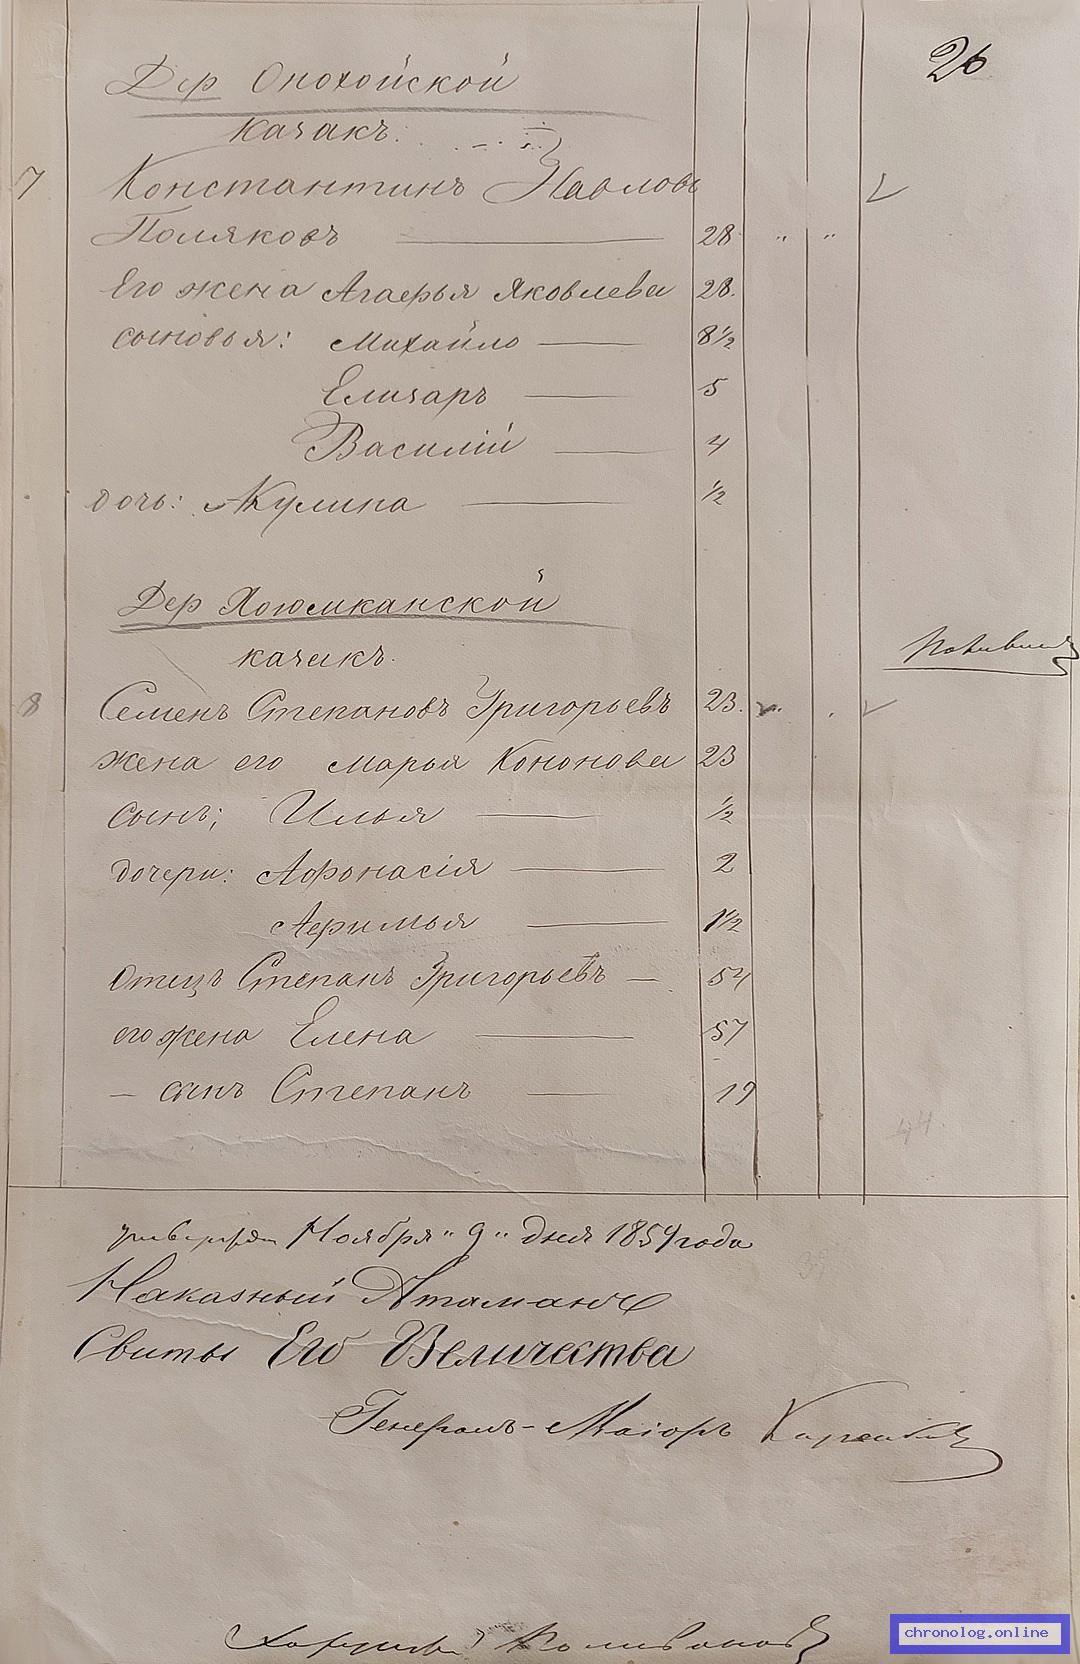 26
Дер Онохойской
казакъ:
7 Константинъ Павловъ
Поляковъ 28 " "
Его жена Агафья Яковлева 28.
сыновья: Михайло 8½
Елизаръ 5
Василій 4
дочь: Акулина ½
Дер
казакъ.
8 Семенъ Степановъ Григорьевъ 23.
жена его Марья Кононова 23
сынъ; Илья ½
дочери: Афонасія 2
Афимья 1½
Отецъ Степанъ Григорьевъ — 54
его жена Елена 57
— сынъ Степанъ 19
44
Ноября "9" дня 1859 года
Наказный Атаманъ
Свиты Его Величества
Генералъ-Маіоръ
chronolog.online